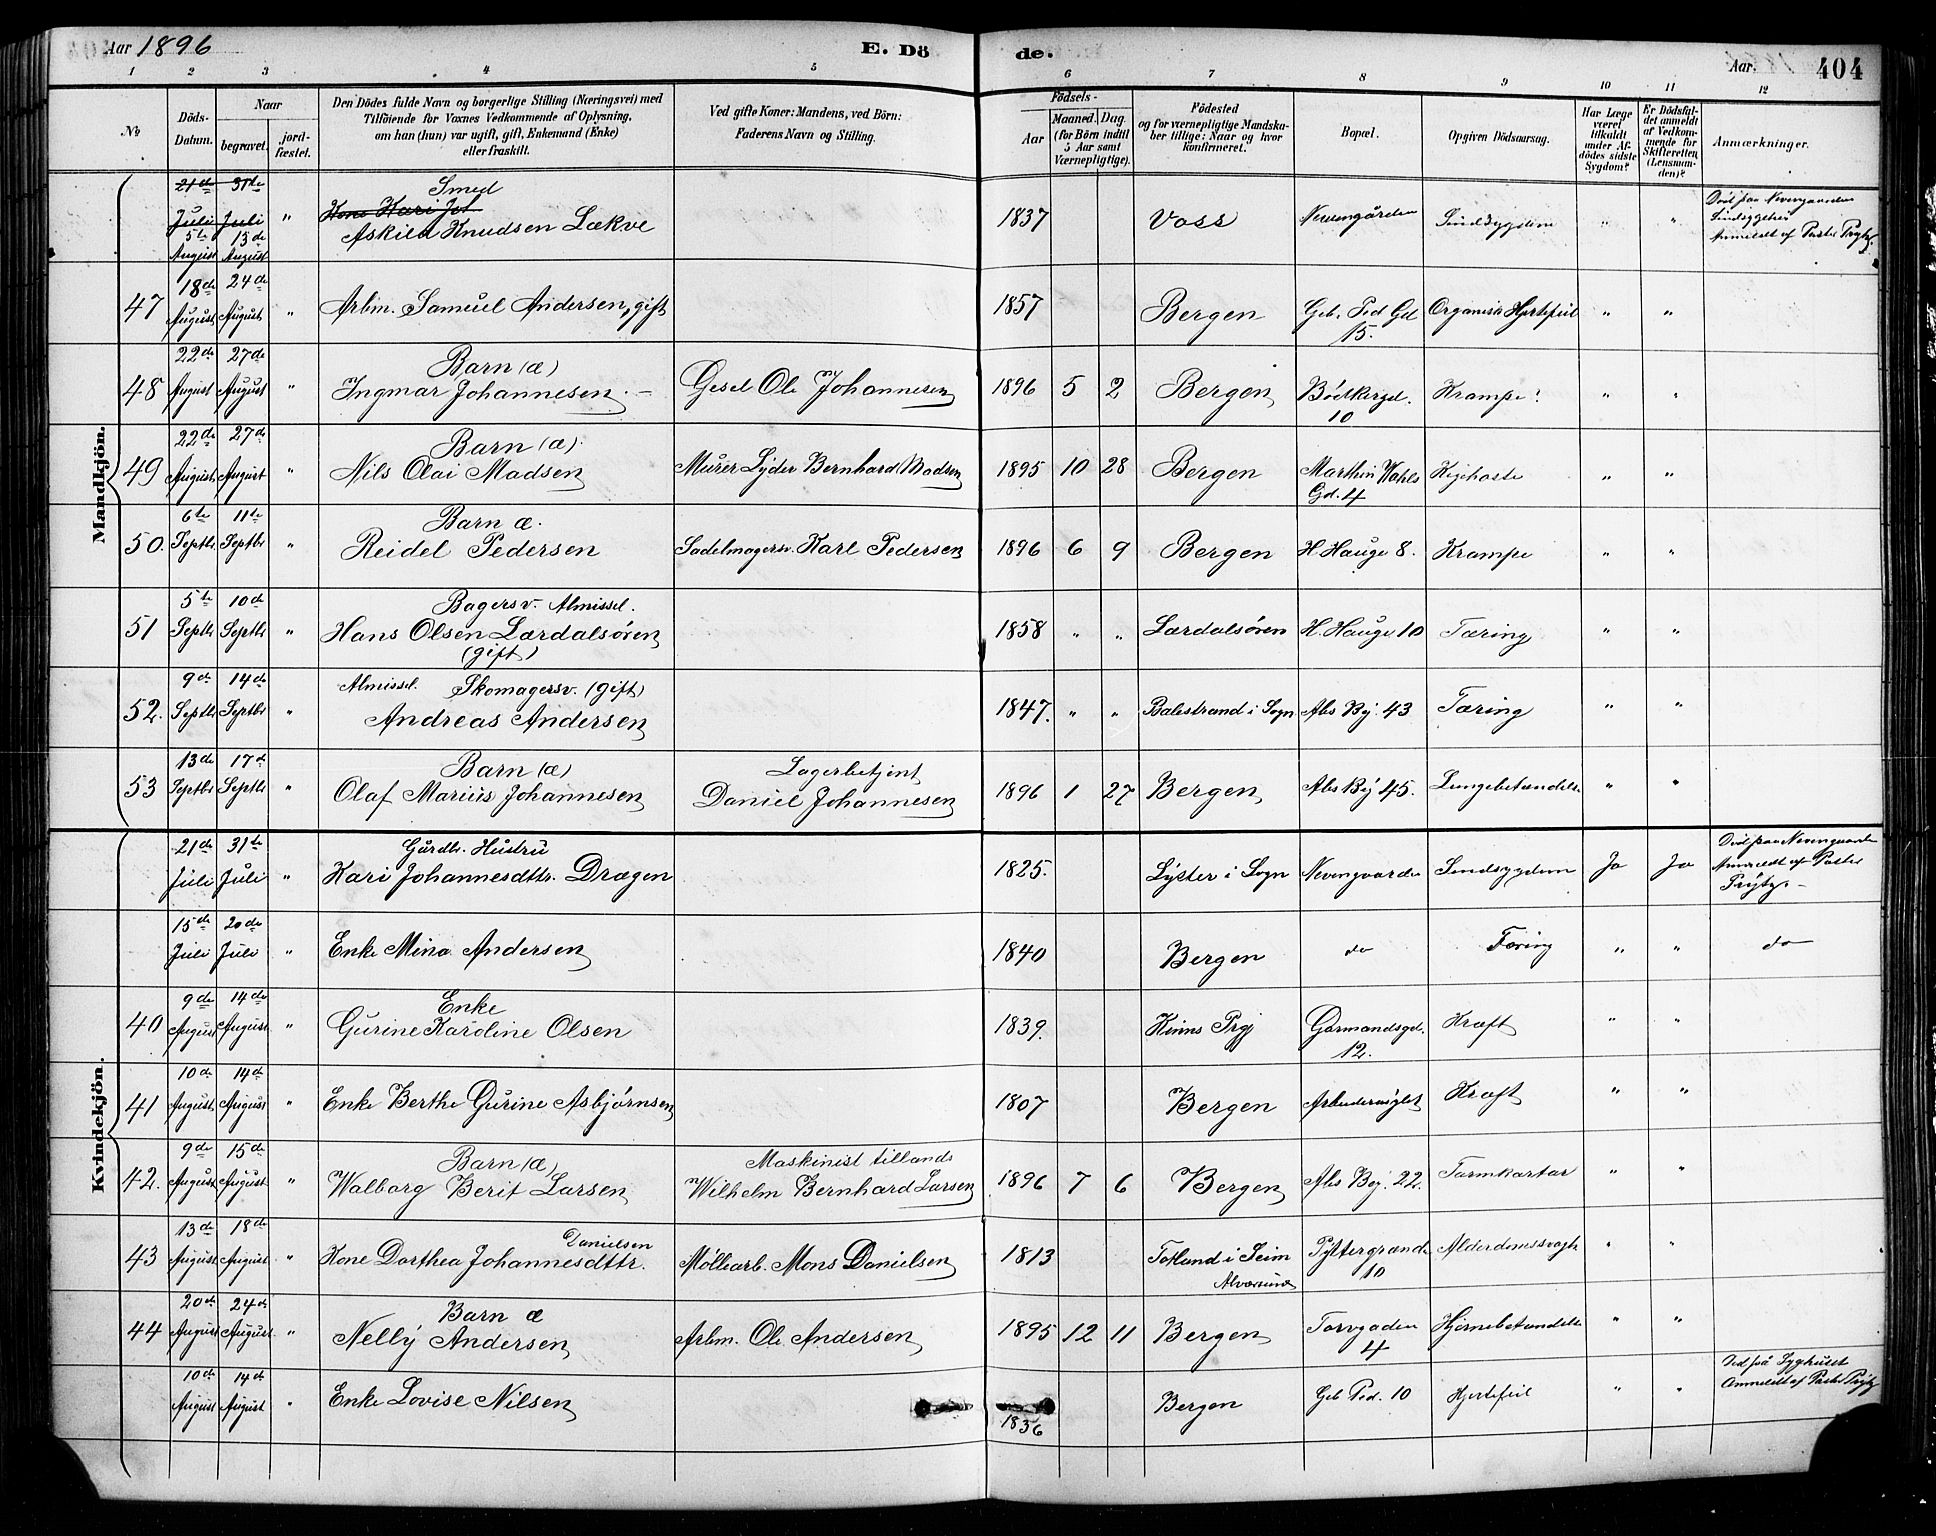 Aar 1896
E. Dö
de.
Aar.
404
1 2 3 4 5 6 7 8 9 10 11 12
No
Döds-
Datum.
Naar
begravet.
jord-
fæstet.
Den Dödes fulde Navn og borgerlige Stilling (Næringsvei) med
Tilföiende for Voxnes Vedkommende af Oplysning,
om han (hun) var ugift, gift, Enkemand (Enke)
eller fraskilt.
Ved gifte Koner: Mandens, ved Börn:
Faderens Navn og Stilling.
Födsels-
Aar
Maaned. Dag.
(for Börn indtil
5 Aar samt
Værnepligtige).
Födested
og for værnepligtige Mandska-
ber tillige: Naar og hvor
konfirmeret.
Bopæl.
Opgiven Dödsaarsag.
Har Læge
været
tilkaldt
under Af-
dödes sidste
Sygdom?
Er Dödsfal-
det anmeldt
af Vedkom-
mende for
Skifteretten
(Lensman-
den)?
Anmærkninger.
Mandkjön.
21de Juli 31te Juli Kone Kari Joh
5te August 13de August " Smed
Askild Knudsen Lækve 1837 Voss Nevengården Sindsygdom " " Död paa Nevengaarden
Sindsygehus
Anmeldt af Pastor Prytz.
47 18de August 24de August " Arbm. Samuel Andersen, gift 1857 Bergen Geb. Ped Gd 15. Organisk Hjertefeil " "
48 22de August 27de August " Barn (æ)
Ingmar Johannesen. - Gesel Ole Johannesen 1896 5 2 Bergen Bödkergd. 10 Krampe! " "
49 22de August 27de August " Barn (æ).
Nils Olai Madsen Murer Lyder Bernhard Madsen 1895 10 28 Bergen Marthin Wahls Gd. 4 Kighoste " "
50. 6te Septbr 11te Septbr " Barn æ.
Reidel Pedersen Sadelmagersv. Karl Pedersen 1896 6 9 Bergen H. Hauge 8. Krampe " "
51 5te Septbr 10de Septbr " Bagersv. Almissel.
Hans Olsen Lærdalsören
(gift) 1858 " " Lærdalsören H. Hauge 10 Tæring " "
52. 9de Septbr 14de Septbr " Almissel. Skomagersv. (gift)
Andreas Andersen 1847. " " Balestrand i Sogn Abs Bej. 43 Tæring " "
53 13de Septbr 17de Septbr " Barn (æ)
Olaf Marius Johannesen Lagerbetjent
Daniel Johannesen 1896 1 27 Bergen Abs Bej 45. Lungebetændelse " "
Kvindekjön.
21de Juli 31te Juli " Gårdbr. Hustru
Kari Johannesdttr. Drægen 1825. Lyster i Sogn Nevengaarden Sindsygdom Ja Ja Död paa Nevengaarden
Anmeldt af Pastor
Prytz. -
15de Juli 20de Juli " Enke Mina Andersen 1840 Bergen do Tæring " " do
40 9de August 14de August " Enke
Gurine Karoline Olsen 1839. Kinns Prgj Garmandsgd. 12. Kræft " "
41 10de August 14de August " Enke Berthe Gurine Asbjørnsen 1807 Bergen Kræft " "
42. 9de August 15de August " Barn (æ)
Walborg Berit Larsen Maskinist tillands
Wilhelm Bernhard Larsen 1896 7 6 Bergen Abs Bej. 22. Tarmkatar " "
43 13de August 18de August " Danielsen
Kone Dorthea Johannesdttr. Möllearb. Mons Danielsen 1813 Totland i Seim
Alværsund Pyttergrænd 10 Alderdomssvagh " "
44 20de August 24de August " Barn æ
Nelly Andersen Arbm. Ole Andersen 1895 12 11 Bergen Torvgaden 4 Hjernebetændelse " "
10de August 14de August " Enke Lovise Nilsen 1836 Bergen Geb Ped. 10 Hjertefeil " " Död på Syghuset
Anmeldt af Pastor Prytz